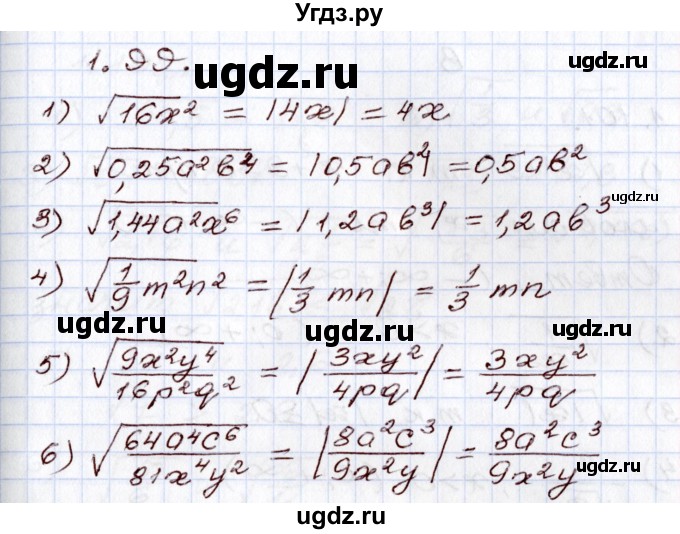 Угдз.ру
1.99.
ugdz.ru
1) √16x² = |4x| = 4x
2) √0,25a²b⁴ = |0,5ab²| = 0,5ab²
ugdz.ru
3) √1,44a²x⁶ = |1,2ab³| = 1,2ab³
4) √1/9 m²n² = |1/3 mn| = 1/3 mn
ugdz.ru ugdz.ru
5) √9x²y⁴/16p²q² = |3xy²/4pq| = 3xy²/4pq
6) √64a⁴c⁶/81x⁴y² = |8a²c³/9x²y| = 8a²c³/9x²y
ugdz.ru